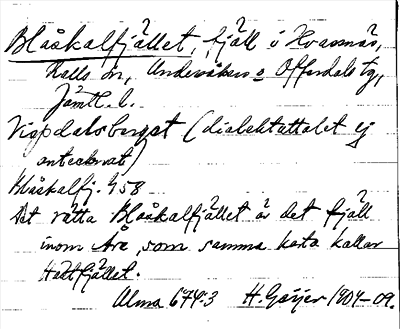 Blåskalfjället, fjäll i Hvassnäs,
Kalls sn, Undersåkers o Offerdals tg,
Jämtl. l.
Vispdalsberget (dialektuttalet ej
antecknat)
Blåskalfj. 458
Det rätta Blåskalfjället är det fjäll
inom Åre, som samma karta kallar
Alma 674:3 H. Geijer 1904-09.